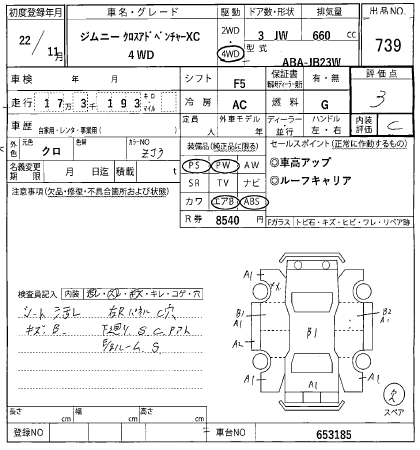 初度登録年月 車名・グレード 駆動 ドア数・形状 排気量 出品NO.
22/11月 ジムニー クロスアドベンチャーXC 4WD 2WD・4WD 3 JW 660 cc 739
型式 ABA-JB23W
車検 年 月 シフト F5 保証書 有・無 評価点 3
走行 17万3千193 キロ・マイル 冷房 AC 燃料 G
車歴 自家用・レンタ・事業用( ) 定員 人 外車モデル 年 ディーラー・並行 ハンドル 左・右 内装評価 C
外色 元色 クロ 色 カラーNO ZJ3 装備品(純正品に限る) セールスポイント(正常に作動するもの)
PS PW AW ◎車高アップ
名義変更期限 月 日迄 積載 t SR TV ナビ ◎ルーフキャリア
注意事項(欠品・修復・不具合箇所および状態) カワ エアB ABS
R券 8540 円 Fガラス トビ石・キズ・ヒビ・ワレ・リペア跡
検査員記入 内装 キレ・コゲ・穴
シート
キズ B 下廻り S C
ルーム S
A1 A1
B1 B2
A1 A1
A2 B1
A1 A1 A1
スペア
長さ cm 幅 cm 高さ cm
登録NO 車台NO 653185